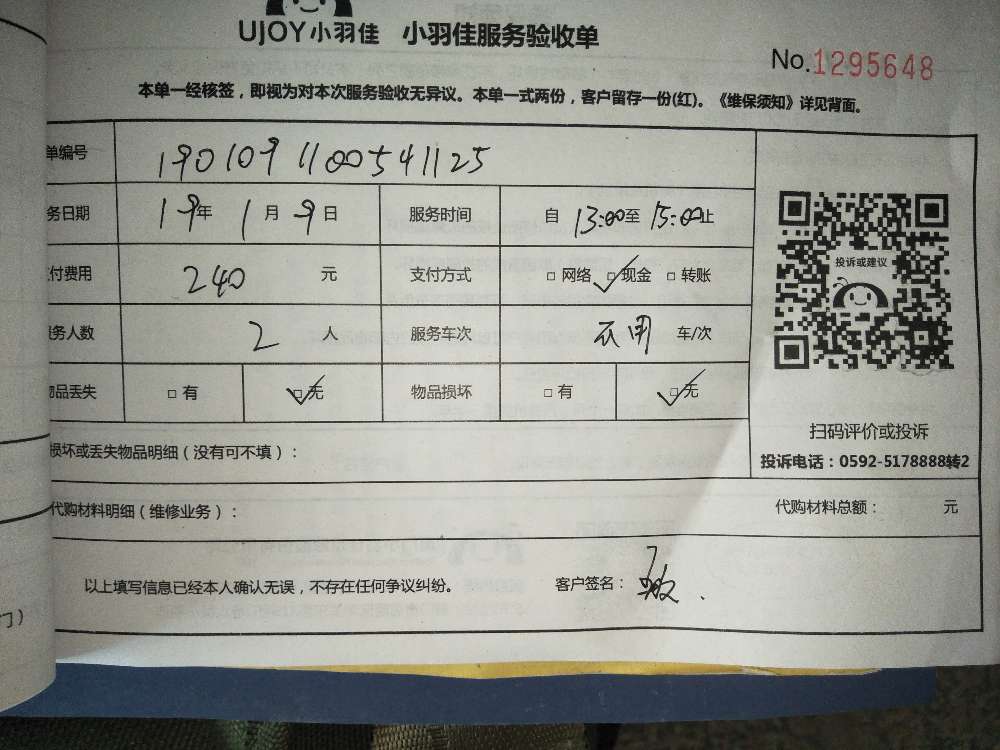 UJOY小羽佳 小羽佳服务验收单
No.1295648
本单一经核签，即视为对本次服务验收无异议。本单一式两份，客户留存一份(红)。《维保须知》详见背面。
单编号 190109110054​1125
务日期 19年 1月 9日 服务时间 自 13:00至 15:00止
付费用 240 元 支付方式 □ 网络 □现金 □ 转账
投诉或建议
务人数 2 人 服务车次 车/次
物品丢失 □ 有 □无 物品损坏 □ 有 □无
扫码评价或投诉
损坏或丢失物品明细（没有可不填）：
投诉电话：0592-5178888转2
代购材料明细（维修业务）： 代购材料总额： 元
以上填写信息已经本人确认无误，不存在任何争议纠纷。 客户签名：
门）